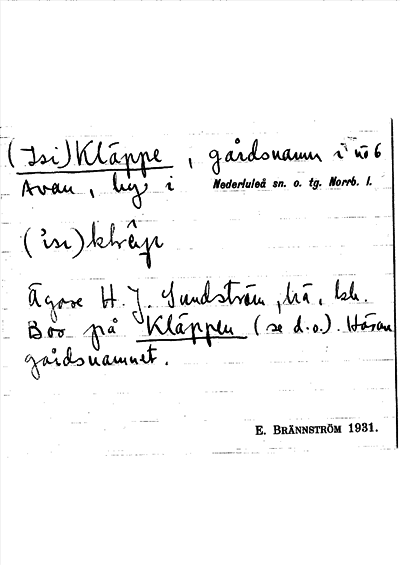 (Isi)Kläppe, gårdsnamn i no 6
Avan, by i Nederluleå sn. o. tg. Norrb. l.
Ägare H. J. Sundström,
Bor på Kläppen (se d.o.). Härav
gårdsnamnet.
E. BRÄNNSTRÖM 1931.